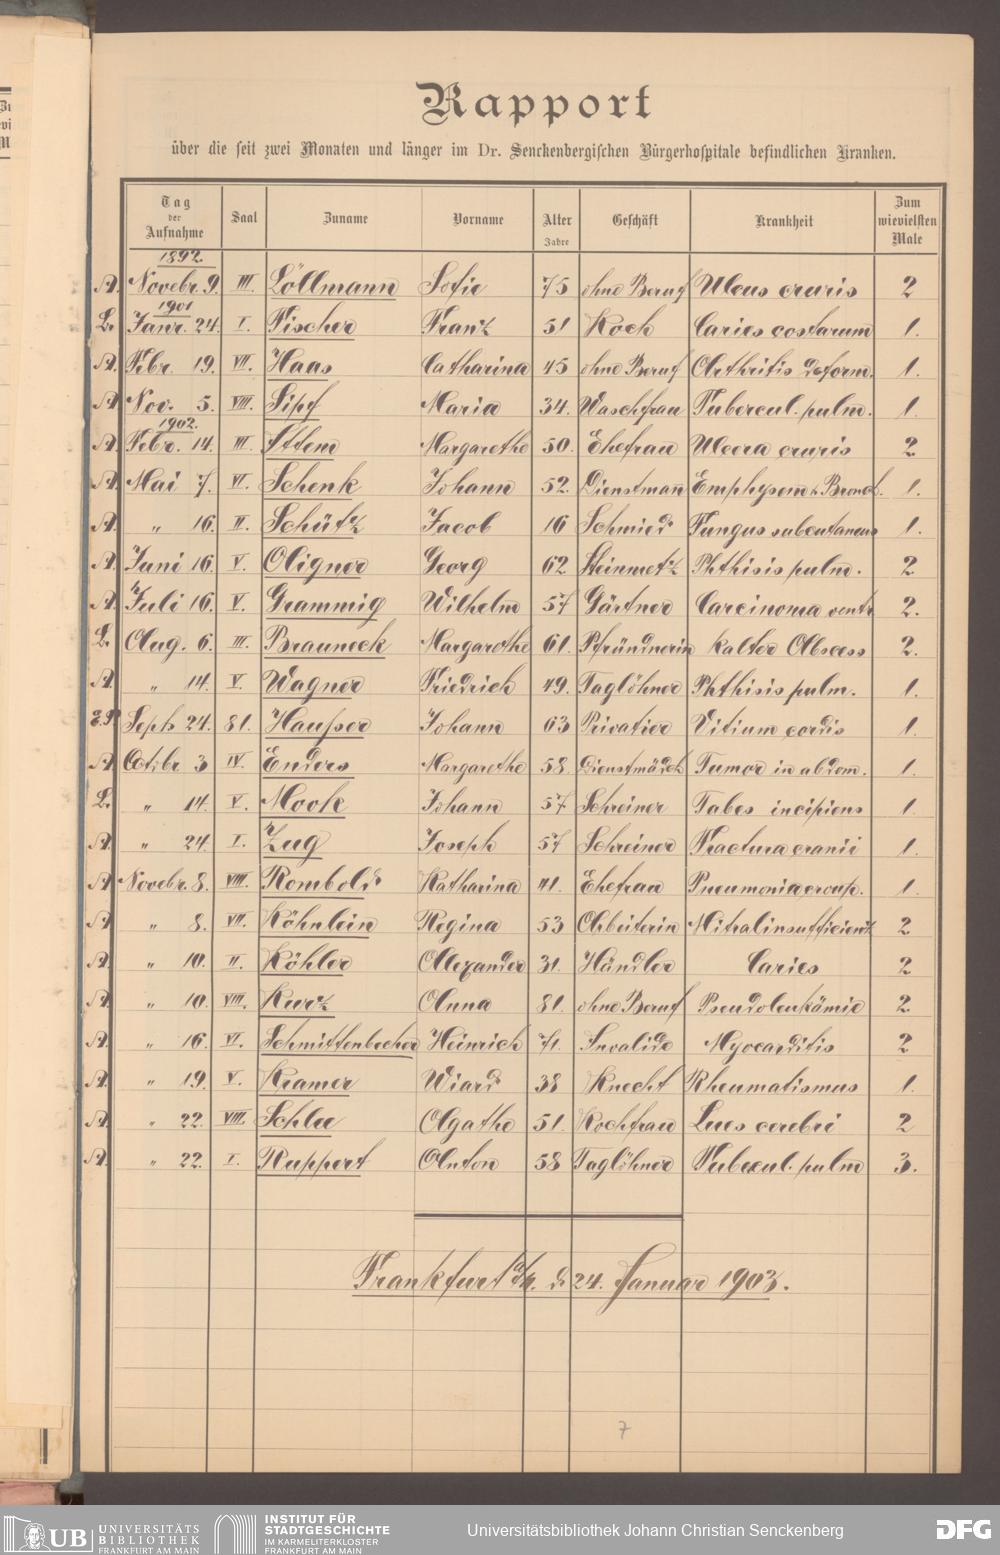 Rapport
über die seit zwei Monaten und länger im Dr. Senckenbergischen Bürgerhospitale befindlichen Kranken.
Tag der Aufnahme Saal Zuname Vorname Alter Jahre Geschäft Krankheit Zum wievielsten Male
1892.
A. Novebr. 9. III. Löllmann Sofie 75 ohne Beruf Ulcus cruris 2
1901
L. Janr. 24. I. Fischer Franz 51 Koch Caries costarum 1.
A. Febr. 19. VII. Haas Catharina 45 ohne Beruf Arthritis deform. 1.
A. Nov. 5. VIII. Sipf Maria 34. Waschfrau Tubercul. pulm. 1.
1902.
A. Febr. 14. III. Ittem Margarethe 50. Ehefrau Ulcera cruris 2
A. Mai 7. VI. Schenk Johann 52. Dienstmann Emphysem & Bronch. 1.
A. " 16. II. Schütz Jacob 16 Schmied Fungus subcutaneus 1.
A. Juni 16. V. Oligner Georg 62 Steinmetz Phthisis pulm. 2
A. Juli 16. V. Grammig Wilhelm 57 Gärtner Carcinoma ventr 2.
L. Aug. 6. III. Brauneck Margarethe 61. Pfründnerin kalter Abscess 2.
A. " 14. V. Wagner Friedrich 49. Taglöhner Phthisis pulm. 1.
Sept. 24. 81. Hausser Johann 63 Privatier Vitium cordis 1.
A. Octbr. 3 IV. Enders Margarethe 58 Dienstmädch Tumor in abdom. 1.
L. " 14. V. Mook Johann 57 Schreiner Tabes incipiens 1
A. " 24 I. Zug Joseph 57 Schreiner Fractura cranii 1.
A Novebr. 8. VIII. Rombold Katharina 41. Ehefrau Pneumonia croup. 1.
A " 8. VII. Köhnlein Regina 53 Arbeiterin Mitralinsufficienz 2
A. " 10. II. Köhler Alexander 31. Händler Caries 2
A. " 10. VIII. Kurz Anna 81. ohne Beruf Pseudoleukämie 2
A. " 16. VI. Schmittenbecher Heinrich 71. Invalide Myocarditis 2
A. " 19. V. Kramer Wiard 38 Knecht Rheumatismus 1.
A. " 22. VIII. Schlee Agathe 51. Kochfrau Lues cerebri 2
A. " 22. I. Ruppert Anton 58 Taglöhner Tubercul. pulm 3.
Frankfurt a/M. d. 24. Januar 1903.
7
UB UNIVERSITÄTS BIBLIOTHEK FRANKFURT AM MAIN
INSTITUT FÜR STADTGESCHICHTE IM KARMELITERKLOSTER FRANKFURT AM MAIN
Universitätsbibliothek Johann Christian Senckenberg
DFG